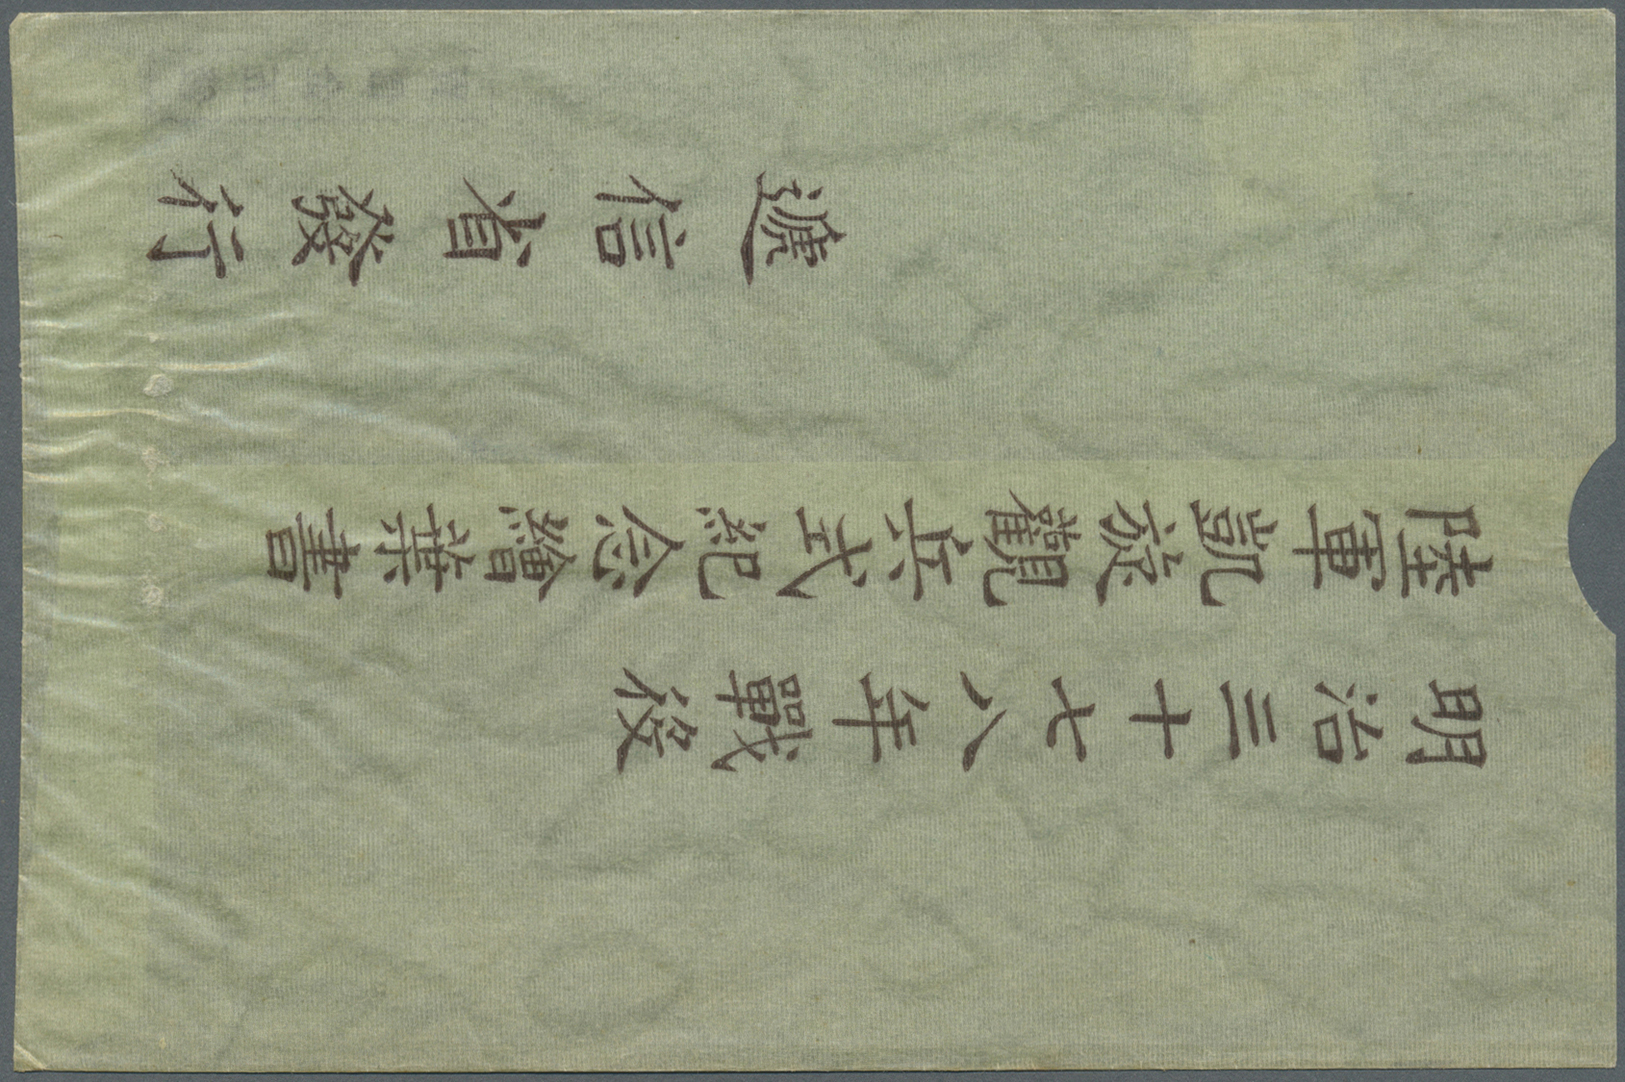 明治三十七八年戰役
陸軍凱旋觀兵式紀念繪葉書
遞信省發行